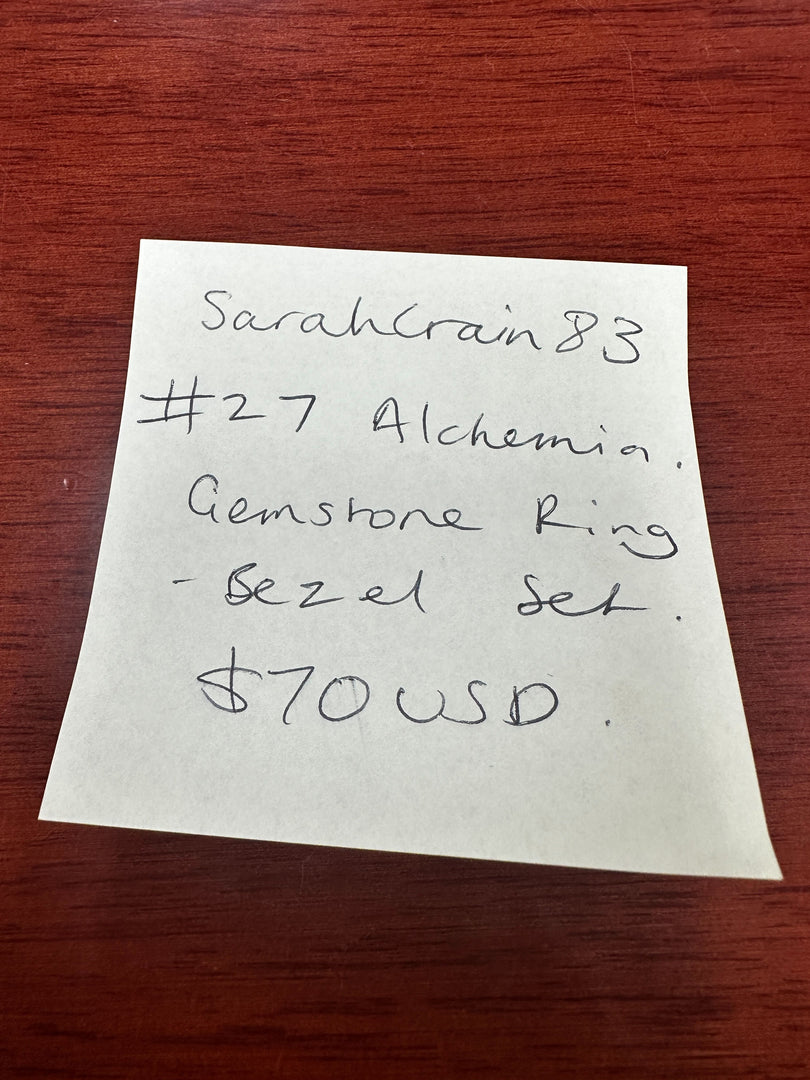 SarahCrain83
#27 Alchemia.
Gemstone Ring
- Bezel Set.
$70 USD.